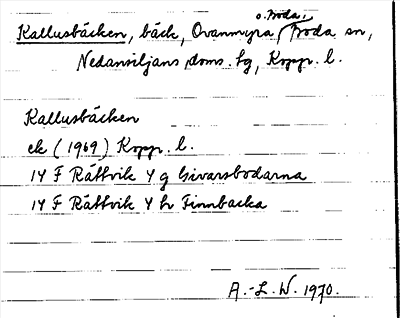 o. Boda,
Kallusbäcken, bäck, Ovanmyra, Boda sn,
Nedansiljans doms. hg, Kopp. l.
Kallusbäcken
ek (1969) Kopp. l.
14 F Rättvik 4 g Givarsbodarna
14 F Rättvik 4 h Finnbacka
A.-L. W. 1970.